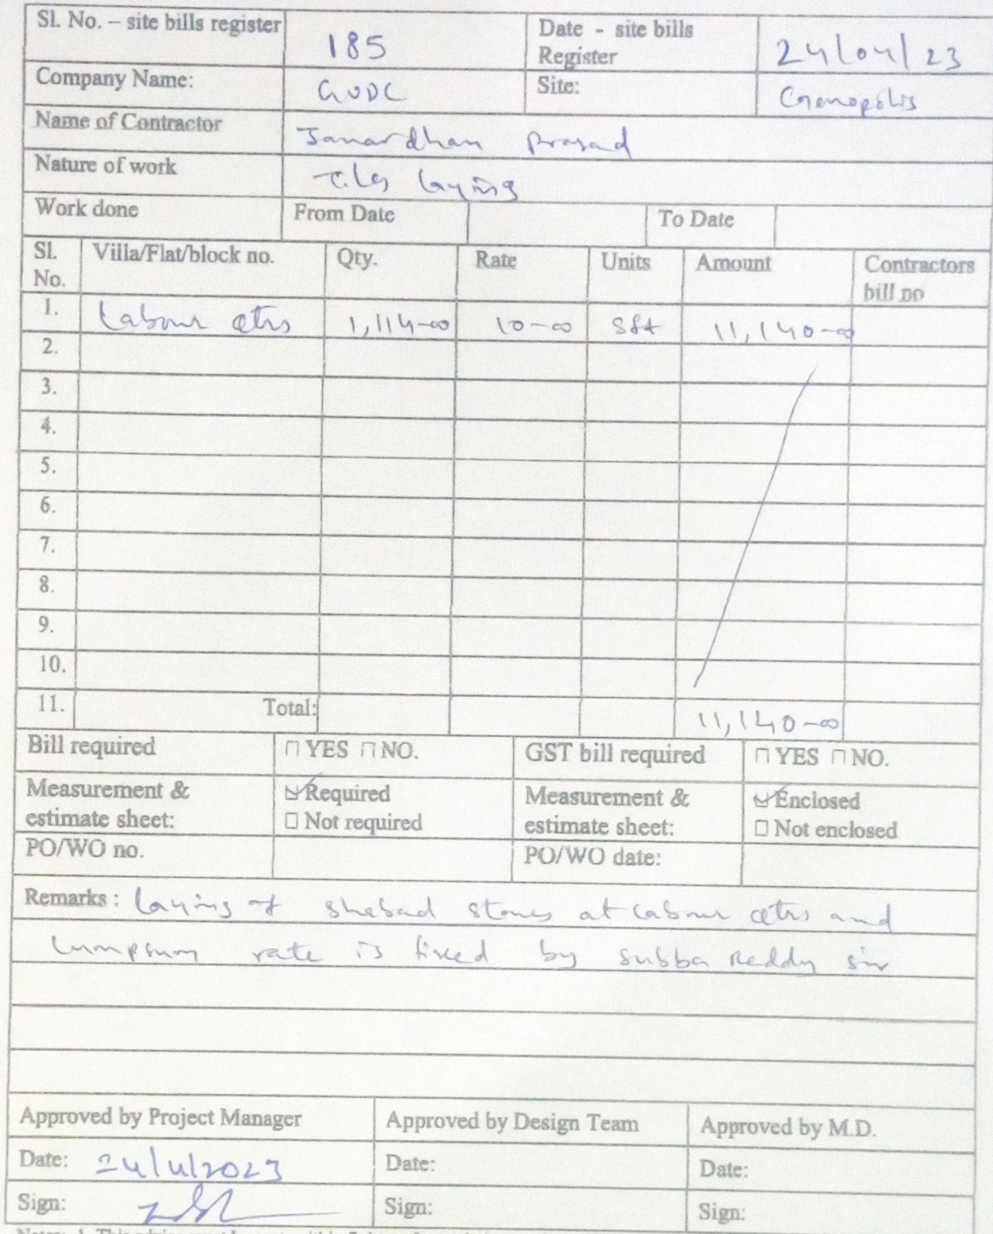 Sl. No. – site bills register 185 Date - site bills Register 24/04/23
Company Name: GVDC Site: Genopolis
Name of Contractor Janardhan Prasad
Nature of work Tiles laying
Work done From Date To Date
Sl. No. Villa/Flat/block no. Qty. Rate Units Amount Contractors bill no
1. Labour qtrs 1,114-00 10-00 sft 11,140-00
2.
3.
4.
5.
6.
7.
8.
9.
10.
11. Total: 11,140-00
Bill required □ YES □ NO. GST bill required □ YES □ NO.
Measurement & estimate sheet: ☑ Required □ Not required Measurement & estimate sheet: ☑ Enclosed □ Not enclosed
PO/WO no. PO/WO date:
Remarks : laying of shabad stones at labour qtrs and
lumpsum rate is fixed by subba Reddy sir
Approved by Project Manager Approved by Design Team Approved by M.D.
Date: 24/4/2023 Date: Date:
Sign: Sign: Sign: